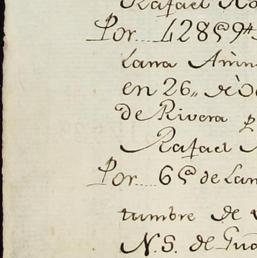 Rafael
Por.... 4285 9
Lana
en 26,, de
de Rivera
Rafael
Por.... 65 de Lan
tumbre de
N.S. de Gua